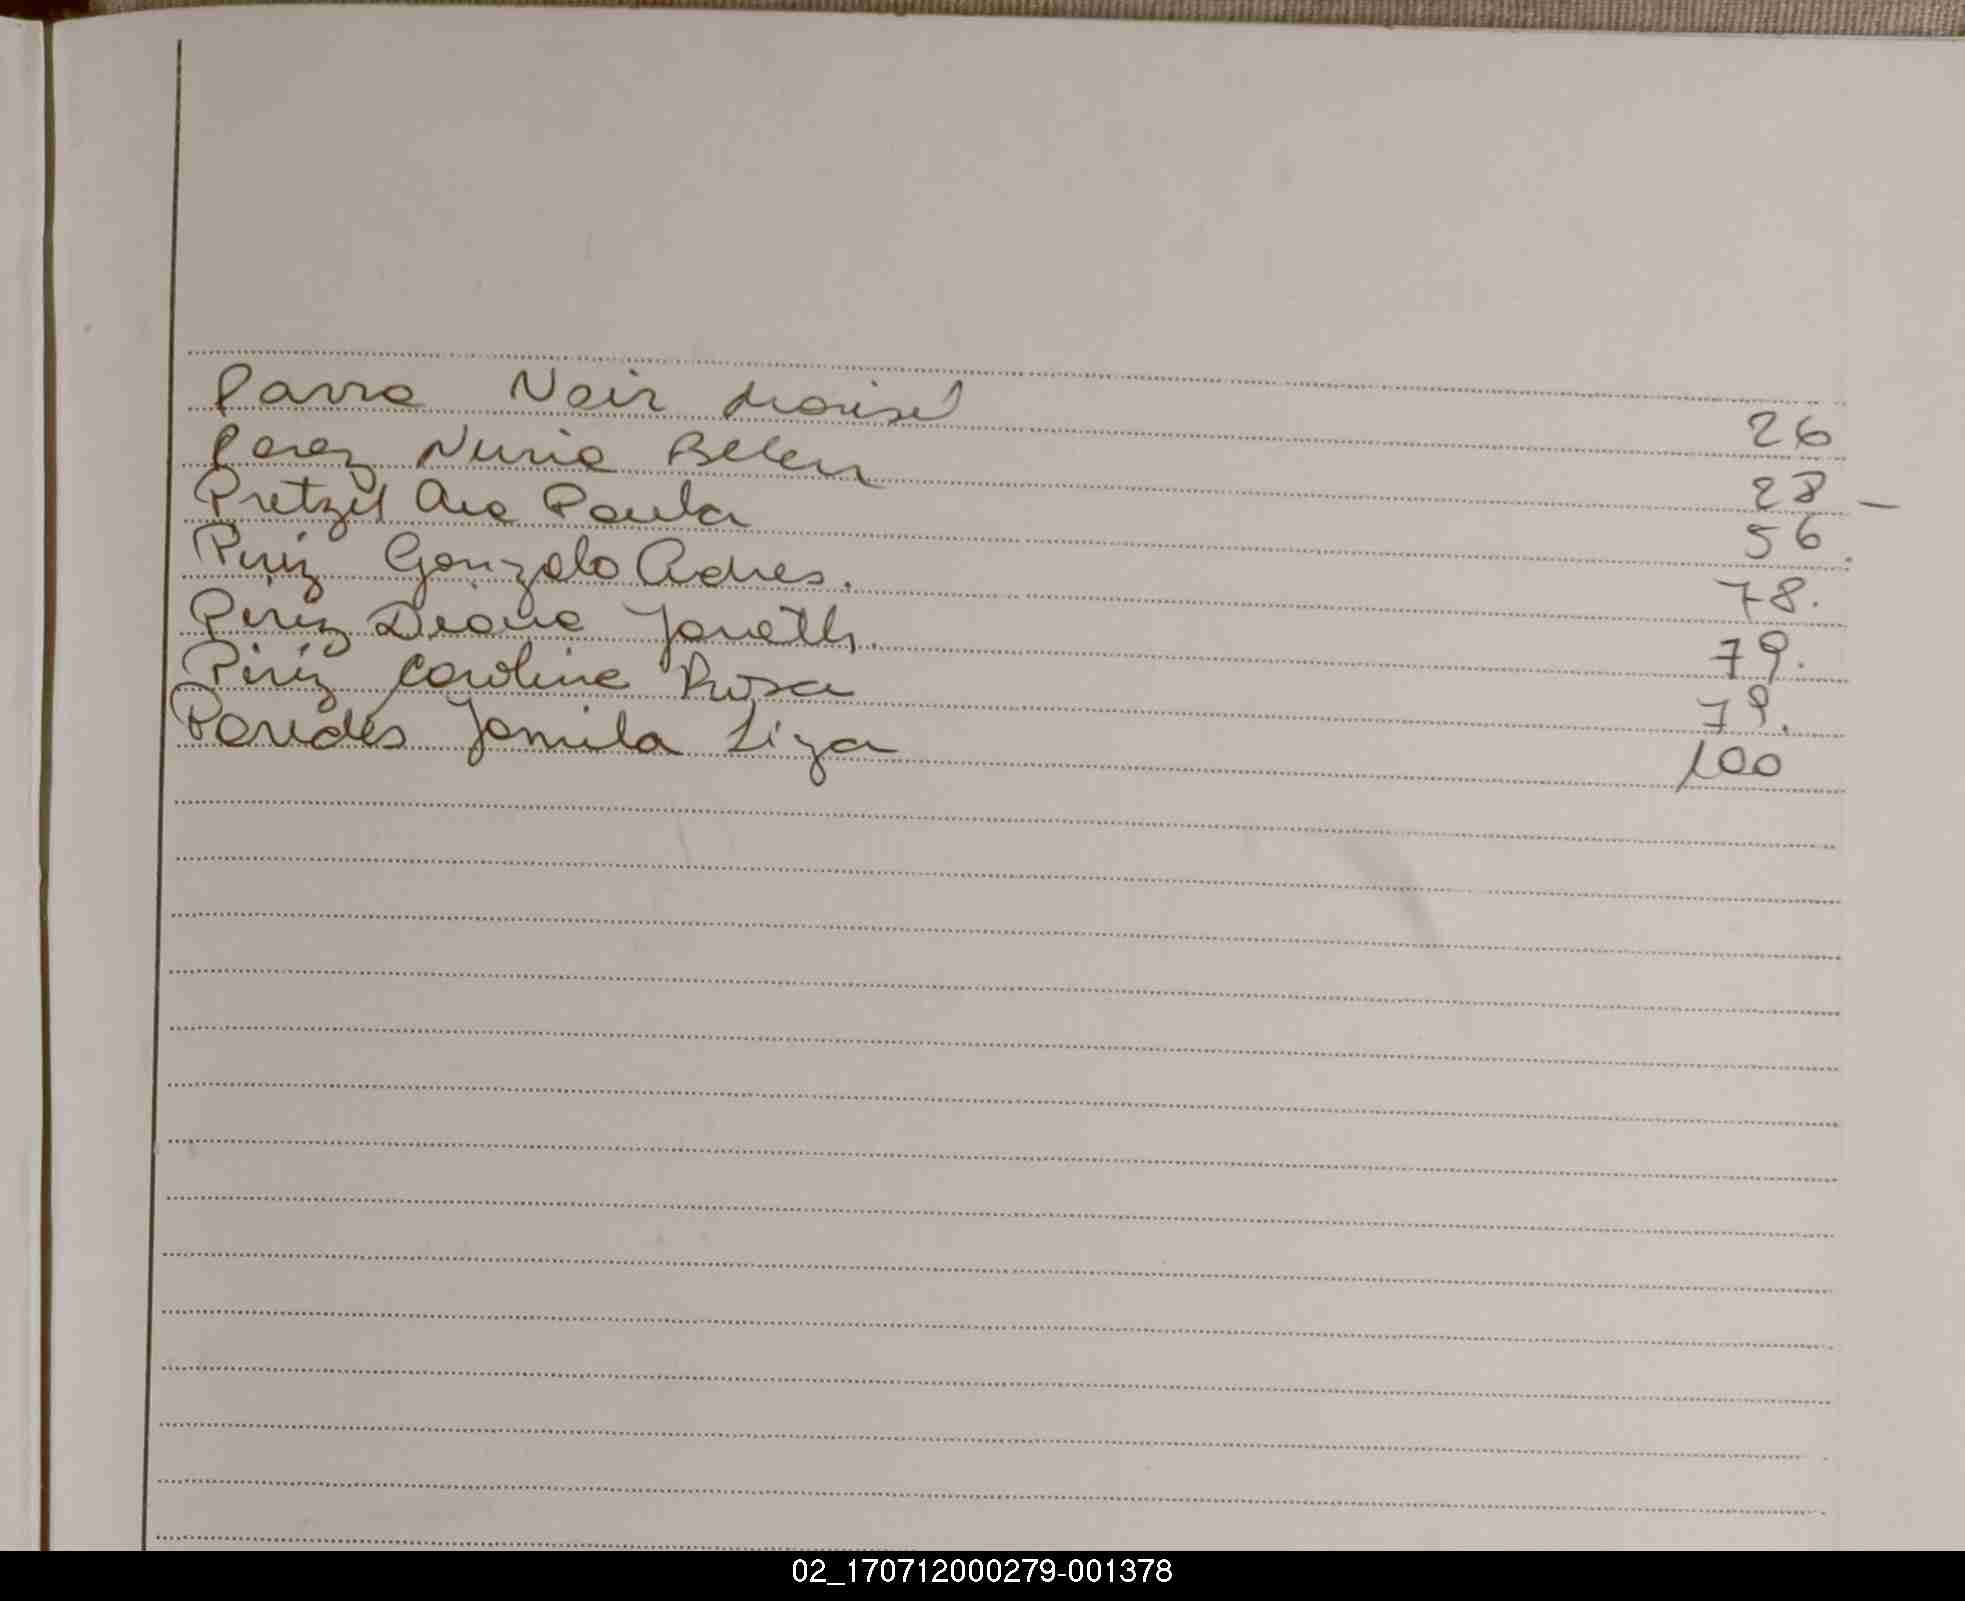 Parra Nair Marisel 26
Perez Nuria Belen 28 -
Pretzel Ana Paula 56.
Piriz Gonzalo Adres. 78.
Piriz Diana Janeth. 79.
Piriz Carolina Rosa 79.
Paredes Jamila Liza 100
02_170712000279-001378